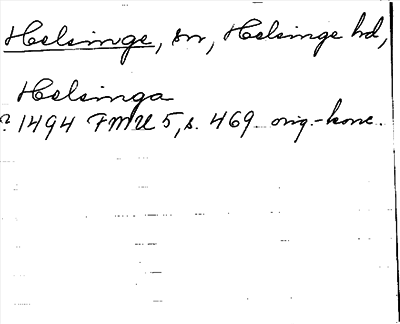 Helsinge, sn, Helsinge hd,
Helsinga
? 1494 FMU 5, s. 469 orig.-konc.